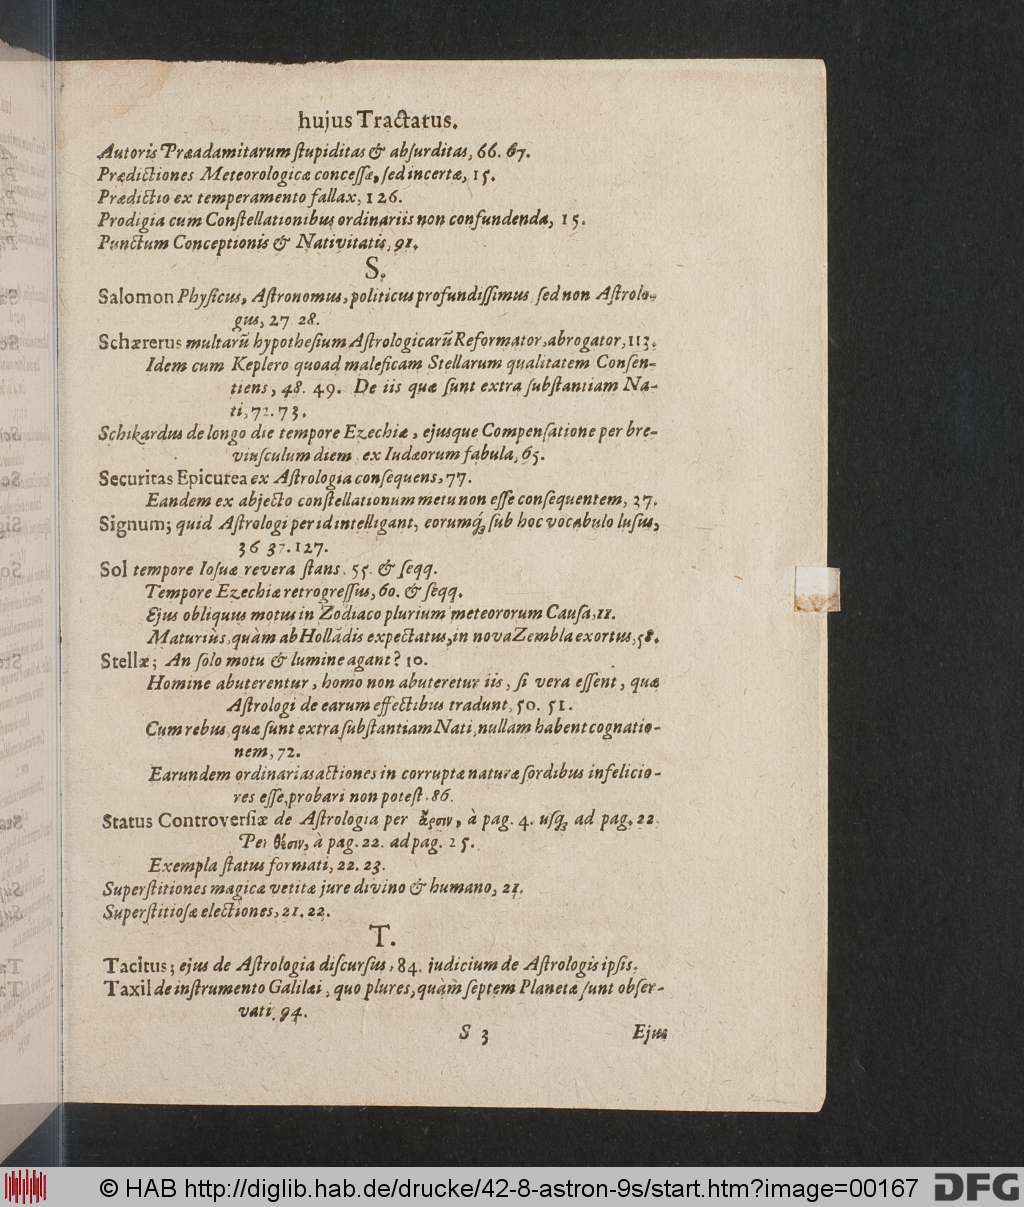 hujus Tractatus.
Autoris Præadamitarum ſtupiditas & abſurditas, 66. 67.
Prædictiones Meteorologicæ conceſſæ, ſed incertæ, 15.
Prædictio ex temperamento fallax, 126.
Prodigia cum Conſtellationibus ordinariis non confundenda, 15.
Punctum Conceptionis & Nativitatis, 91.
S.
Salomon Phyſicus, Aſtronomus, politicus profundiſſimus ſed non Aſtrolo-
gus, 27 28.
Schærerus multarũ hypotheſium Aſtrologicarũ Reformator, abrogator, 113.
Idem cum Keplero quoad maleficam Stellarum qualitatem Conſen-
tiens, 48. 49. De iis quæ ſunt extra ſubſtantiam Na-
ti, 72. 73.
Schikardus de longo die tempore Ezechiæ, ejusque Compenſatione per bre-
viuſculum diem ex Iudæorum fabula, 65.
Securitas Epicurea ex Aſtrologia conſequens, 77.
Eandem ex abjecto conſtellationum metu non eſſe conſequentem, 27.
Signum; quid Aſtrologi per id intelligant, eorumq́ꝫ ſub hoc vocabulo luſus,
36 37. 127.
Sol tempore Ioſuæ revera ſtans. 55. & ſeqq.
Tempore Ezechiæ retrogreſſus, 60. & ſeqq.
Ejus obliquus motus in Zodiaco plurium meteororum Cauſa, 11.
Maturiùs, quàm ab Hollãdis expectatus, in nova Zembla exortus, 58.
Stellæ; An ſolo motu & lumine agant? 10.
Homine abuterentur, homo non abuteretur iis, ſi vera eſſent, quæ
Aſtrologi de earum effectibus tradunt, 50. 51.
Cum rebus, quæ ſunt extra ſubſtantiam Nati, nullam habent cognatio-
nem, 72.
Earundem ordinarias actiones in corruptæ naturæ ſordibus infelicio-
res eſſe, probari non poteſt. 86.
Status Controverſiæ de Aſtrologia per ἄρσιν, à pag. 4. uſqꝫ ad pag. 22
Per θέσιν, à pag. 22. ad pag. 25.
Exempla ſtatus formati, 22. 23.
Superſtitiones magicæ vetitæ jure divino & humano, 21.
Superſtitioſæ electiones, 21. 22.
T.
Tacitus; ejus de Aſtrologia diſcurſus, 84. judicium de Aſtrologis ipſis.
Taxil de inſtrumento Galilæi, quo plures, quàm ſeptem Planetæ ſunt obſer-
vati, 94.
S 3 Ejus
© HAB http://diglib.hab.de/drucke/42-8-astron-9s/start.htm?image=00167 DFG